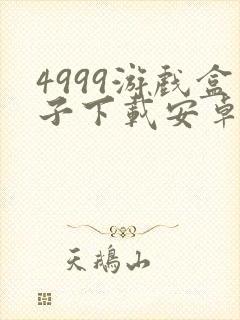 4999游戏盒
子下载安卓
天鹅山